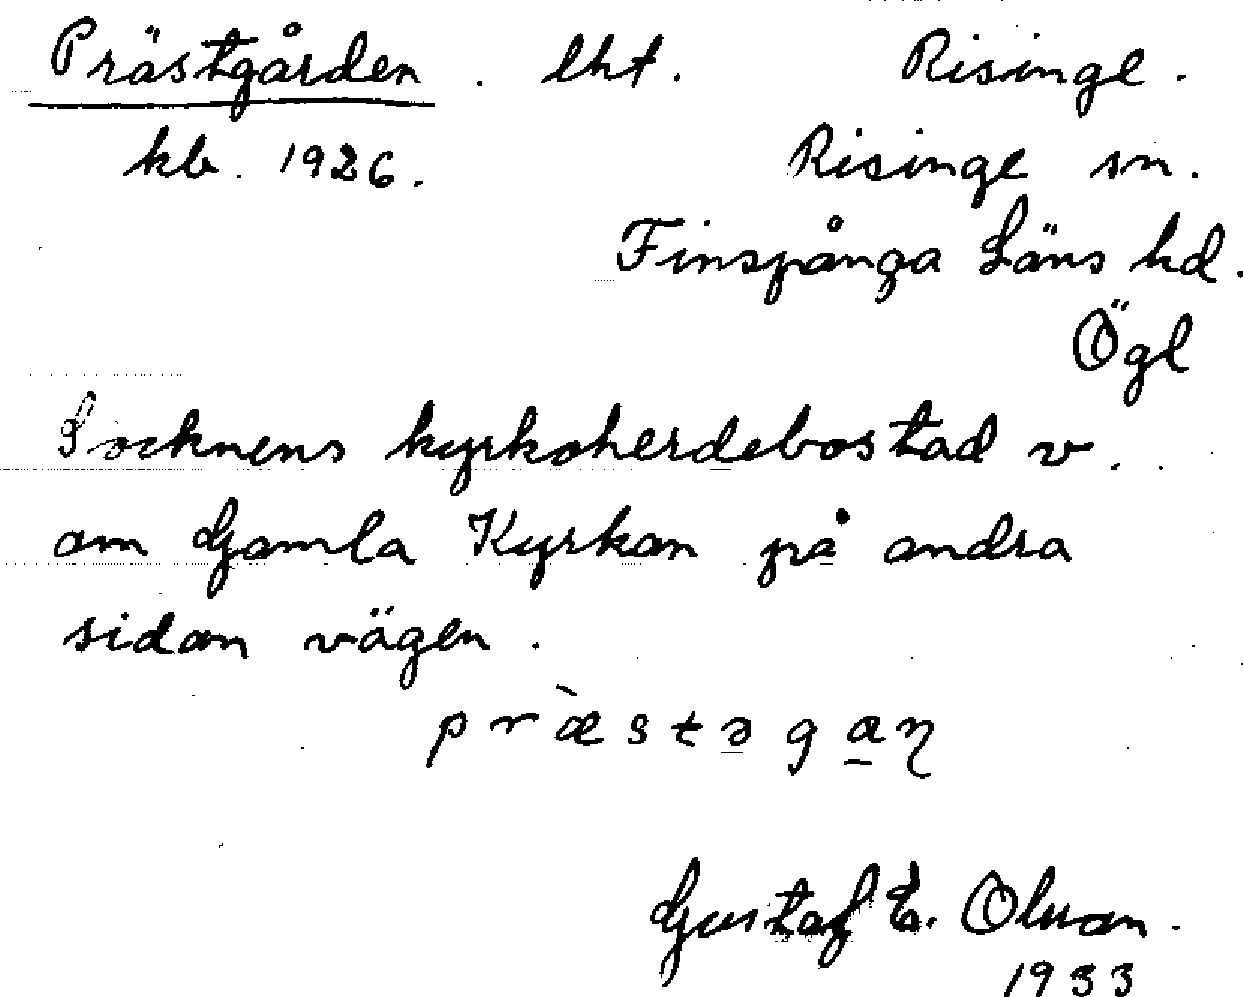 Prästgården . lht. Risinge.
kb. 1926. Risinge sn.
Finspånga Läns hd.
Ögl
Socknens kyrkoherdebostad v.
om Gamla Kyrkan på andra
sidan vägen.
præ̀stəgaɳ
Gustaf E. Olsson.
1933